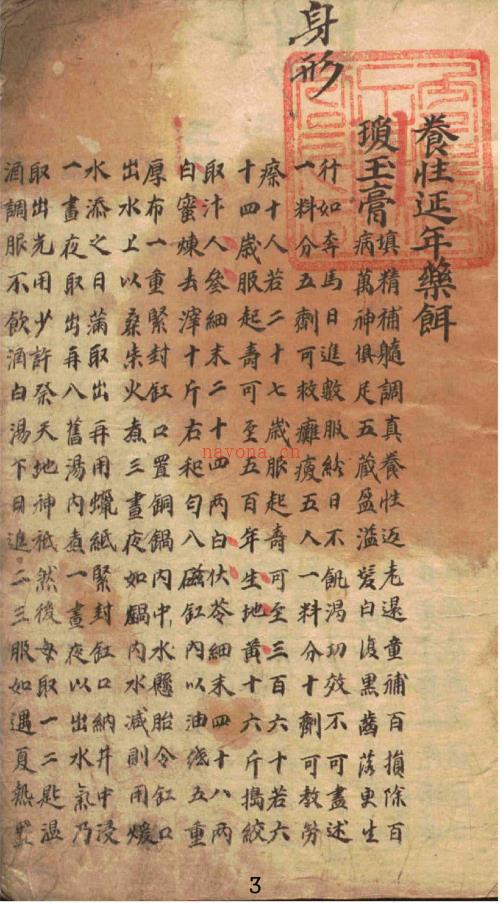 身形
養性延年藥餌
瓊玉膏
填精補髓調真養性返老還童補百損除百
病萬神俱足五蔵盈溢髮白復黑齒落更生
行如奔馬日進數服終日不飢渴功效不可盡述
一料分五劑可救癱瘓五人一料分十劑可救勞
瘵十人若二十七歲服起壽可至三百六十若六
十四歲服起壽可至五百年生地黃十六斤搗絞
取汁人參細末二十四兩白伏苓細末四十八兩
白蜜煉去滓十斤右和勻入磁缸內以油纸五重
厚布一重緊封缸口置銅鍋內中水懸胎令缸口
出水上以桑柴火煮三晝夜如鍋內水減則用煖
水添之日滿取出再用蠟紙緊封缸口納井中浸
一晝夜取出再入舊湯內煮一晝夜以出水氣乃
取出先用少許祭天地神祇然後每取一二匙溫
酒調服不飲酒白湯下日進二三服如遇夏熱置
nayona.cn
3